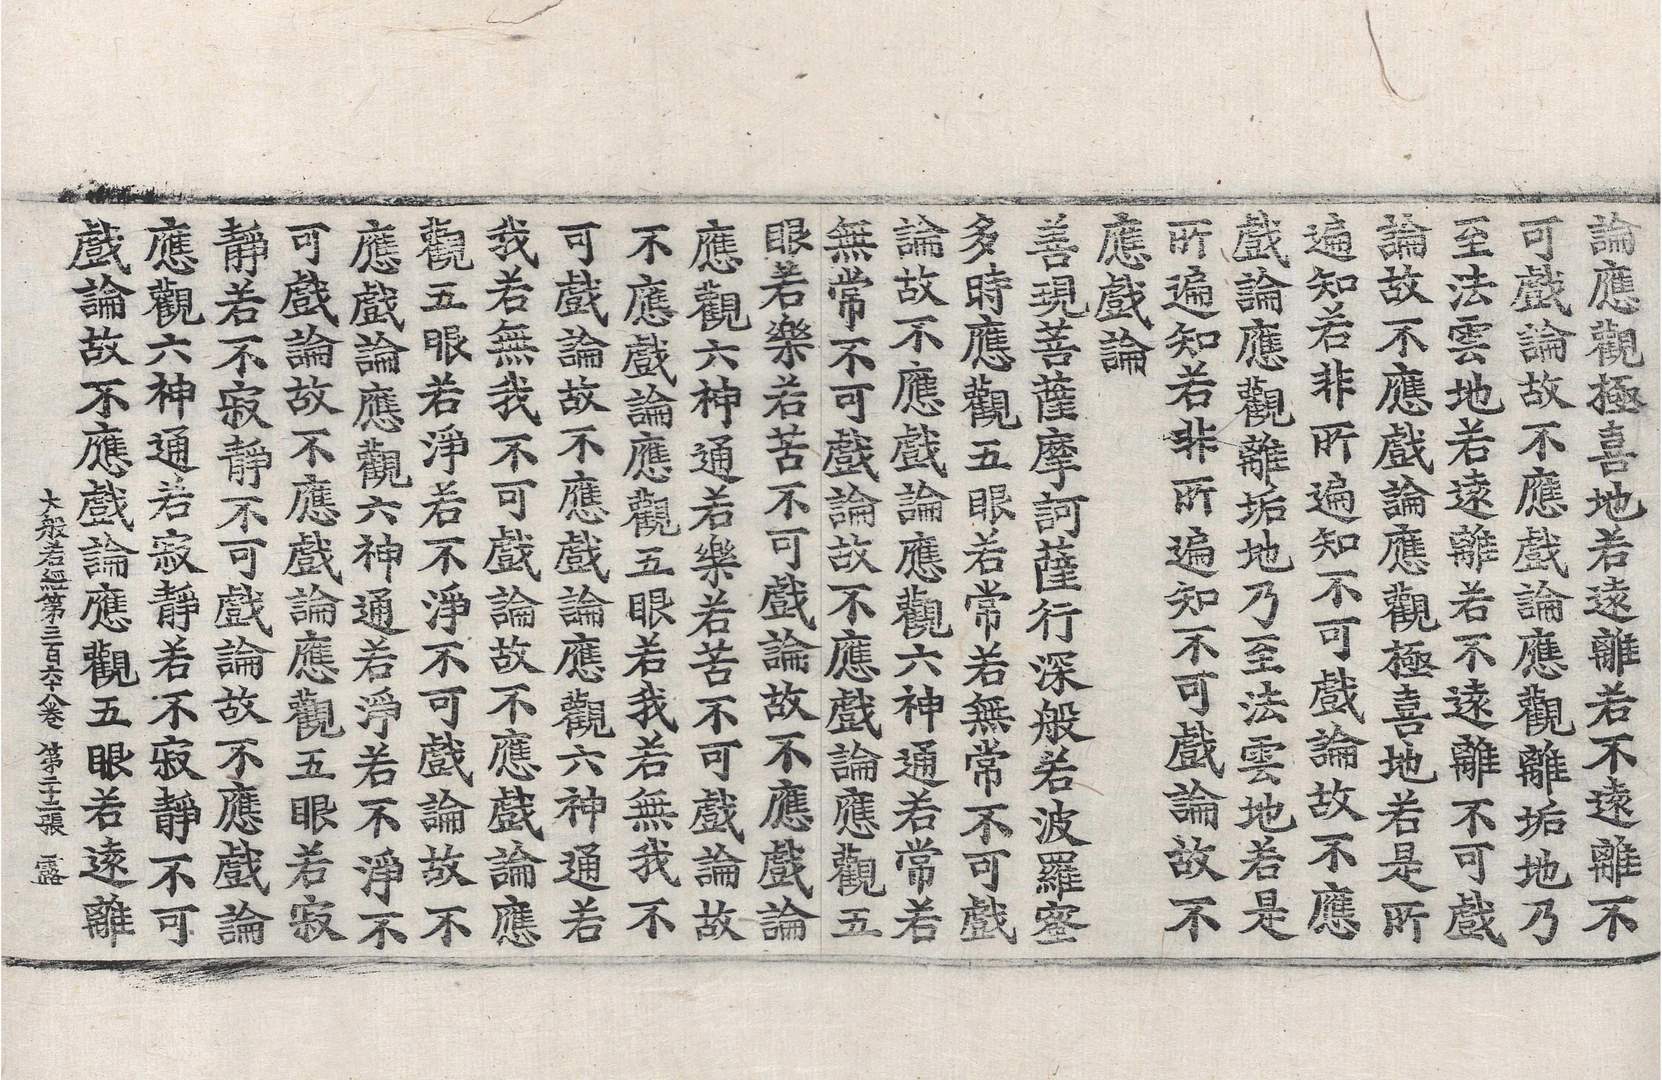 論應觀極喜地若遠離若不遠離不
可戲論故不應戲論應觀離垢地乃
至法雲地若遠離若不遠離不可戲
論故不應戲論應觀極喜地若是所
遍知若非所遍知不可戲論故不應
戲論應觀離垢地乃至法雲地若是
所遍知若非所遍知不可戲論故不
應戲論
善現菩薩摩訶薩行深般若波羅蜜
多時應觀五眼若常若無常不可戲
論故不應戲論應觀六神通若常若
無常不可戲論故不應戲論應觀五
眼若樂若苦不可戲論故不應戲論
應觀六神通若樂若苦不可戲論故
不應戲論應觀五眼若我若無我不
可戲論故不應戲論應觀六神通若
我若無我不可戲論故不應戲論應
觀五眼若淨若不淨不可戲論故不
應戲論應觀六神通若淨若不淨不
可戲論故不應戲論應觀五眼若寂
靜若不寂靜不可戲論故不應戲論
應觀六神通若寂靜若不寂靜不可
戲論故不應戲論應觀五眼若遠離
大般若經第三百六十八卷 第二十二張 露